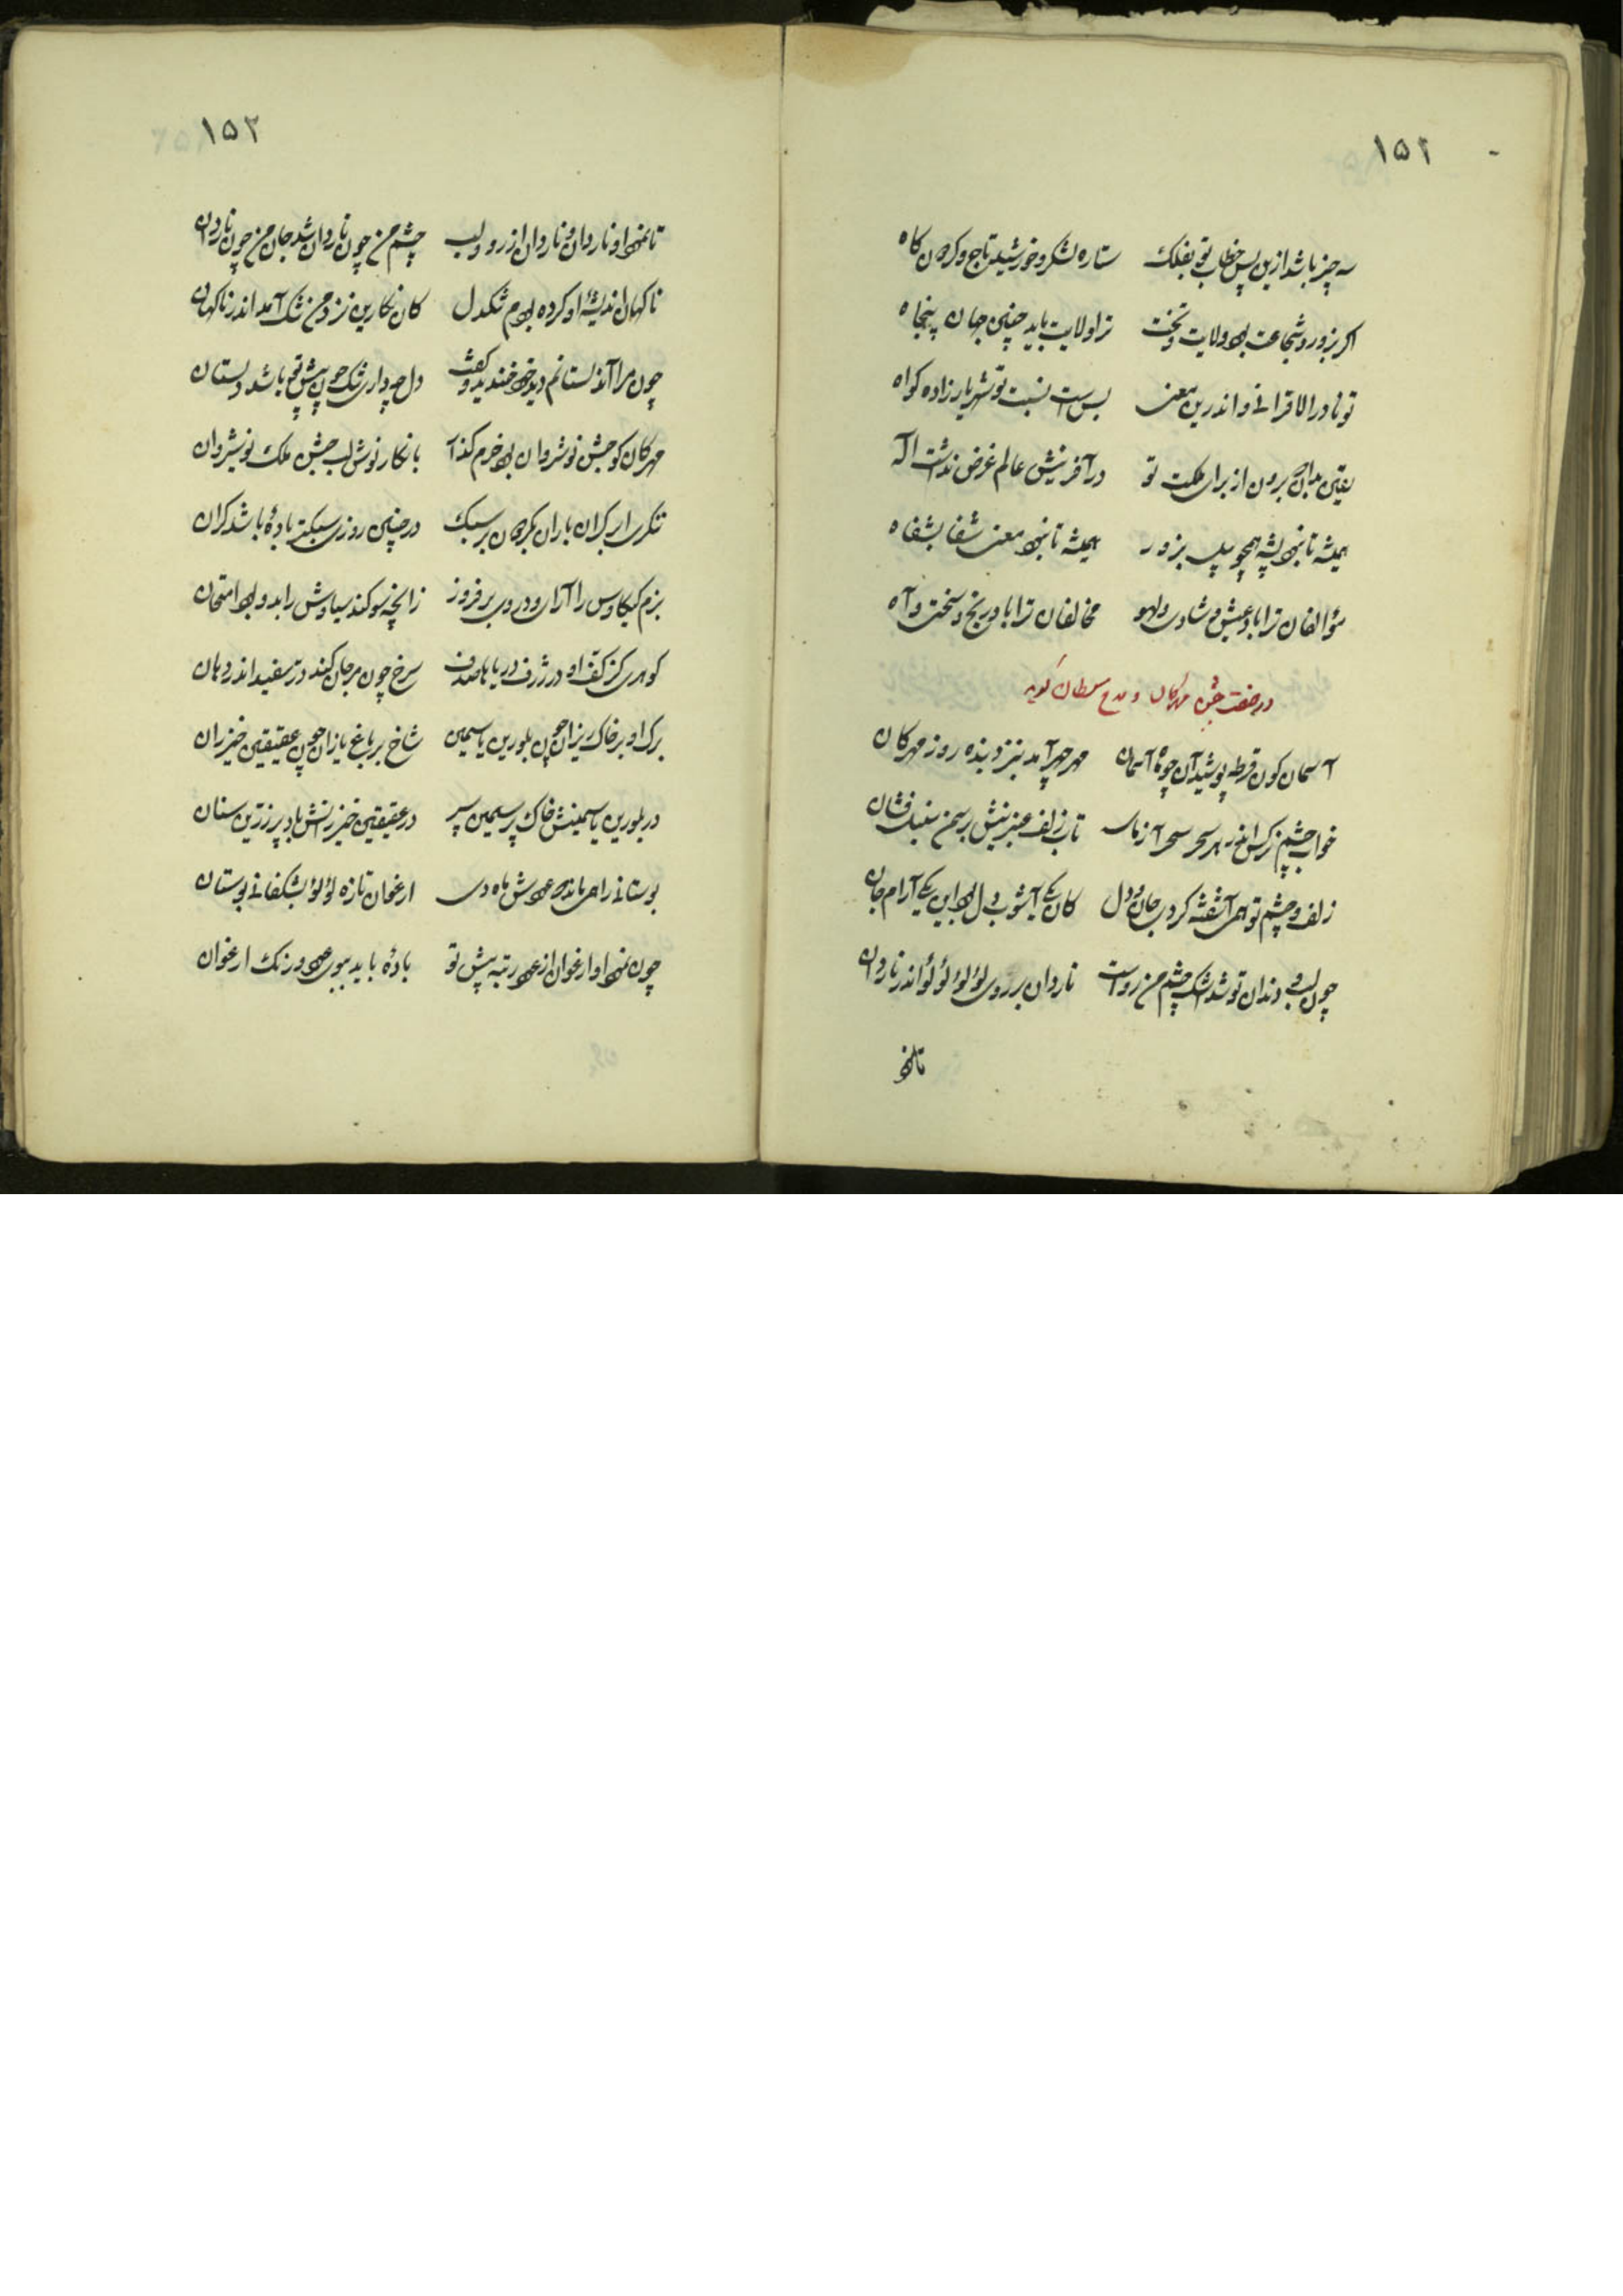 ۱۵۲
سه چیز باشد ازین پس خطاب تو بفلک ستاره لشکر و خورشید تاج و گردون گاه
اگر بزور و شجاعت بود ولایت و تخت ترا ولایت باید چنین جهان پنجاه
تو نادر الاقرانی و اندرین معنی بس است نسبت تو شهریار زاده گواه
یقین بدان که برون از برای ملکت تو در آفرینش عالم غرض نداشت اله
همیشه تا نبود پشه همچو پیل بزور همیشه تا نبود معنی شفا بشفاه
مؤالفان ترا باد عیش و شادی و لهو مخالفان ترا باد رنج و سختی و آه
در صفت جشن مهرگان و مدح سلطان گوید
آسمان گون قرطه پوشید آن چو ماه آسمان مهر چهر آمد بنزد بنده روز مهرگان
خواب چشم نرگسانش بر سحر سحر آزمای تاب زلف عنبرینش بر سمن سنبل فشان
زلف و چشم تو همی آشفته کردی جان و دل کان یکی آشوب دل بود این یکی آرام جان
چون لب و دندان تو شد اشک چشم من رواست ناردان بر روی لؤلؤ لؤلؤ اندر ناردان
تا نمود
۱۵۳
تا نمود او ناردان و نار دان از رو و لب چشم من چون ناردان شد جان من چون ناردان
ناگهان اندیشهٔ او کرده بودم تنگدل کان نگارین نزد من تنگ آمد اندر ناگهان
چون مرا آن دلستانم دید خود خندید و گفت دل چه داری تنگ چون پیش تو باشد دلستان
مهرگان کو جشن نوشروان بود خرم گذار با نگار نوش لب جشن ملک نوشیروان
تنگری ابر گران باران بگردون بر سبک در چنین روزی سبکتر بادهٔ باشد گران
بزم کیکاوس را آرای و در وی بر فروز زانچه سوگند سیاوش را بدو بود امتحان
گوهری کز تف او در ژرف دریا با صدف سرخ چون مرجان کند در سفید اندر دهان
برگ او بر خاک ریزان چون بلورین یاسمین شاخ بر باغ یازان چون عقیقین خیزران
در بلورین یاسمینش خاک پر سیمین سپر در عقیقین خیزرانش باد پر زرین سنان
بوستانی را همی ماند که عودش ماه دی ارغوان تازه لؤلؤ بشکفانی بوستان
چون نمود او ارغوان از عود رتبه پیش تو بادهٔ باید ببوی عود و رنگ ارغوان